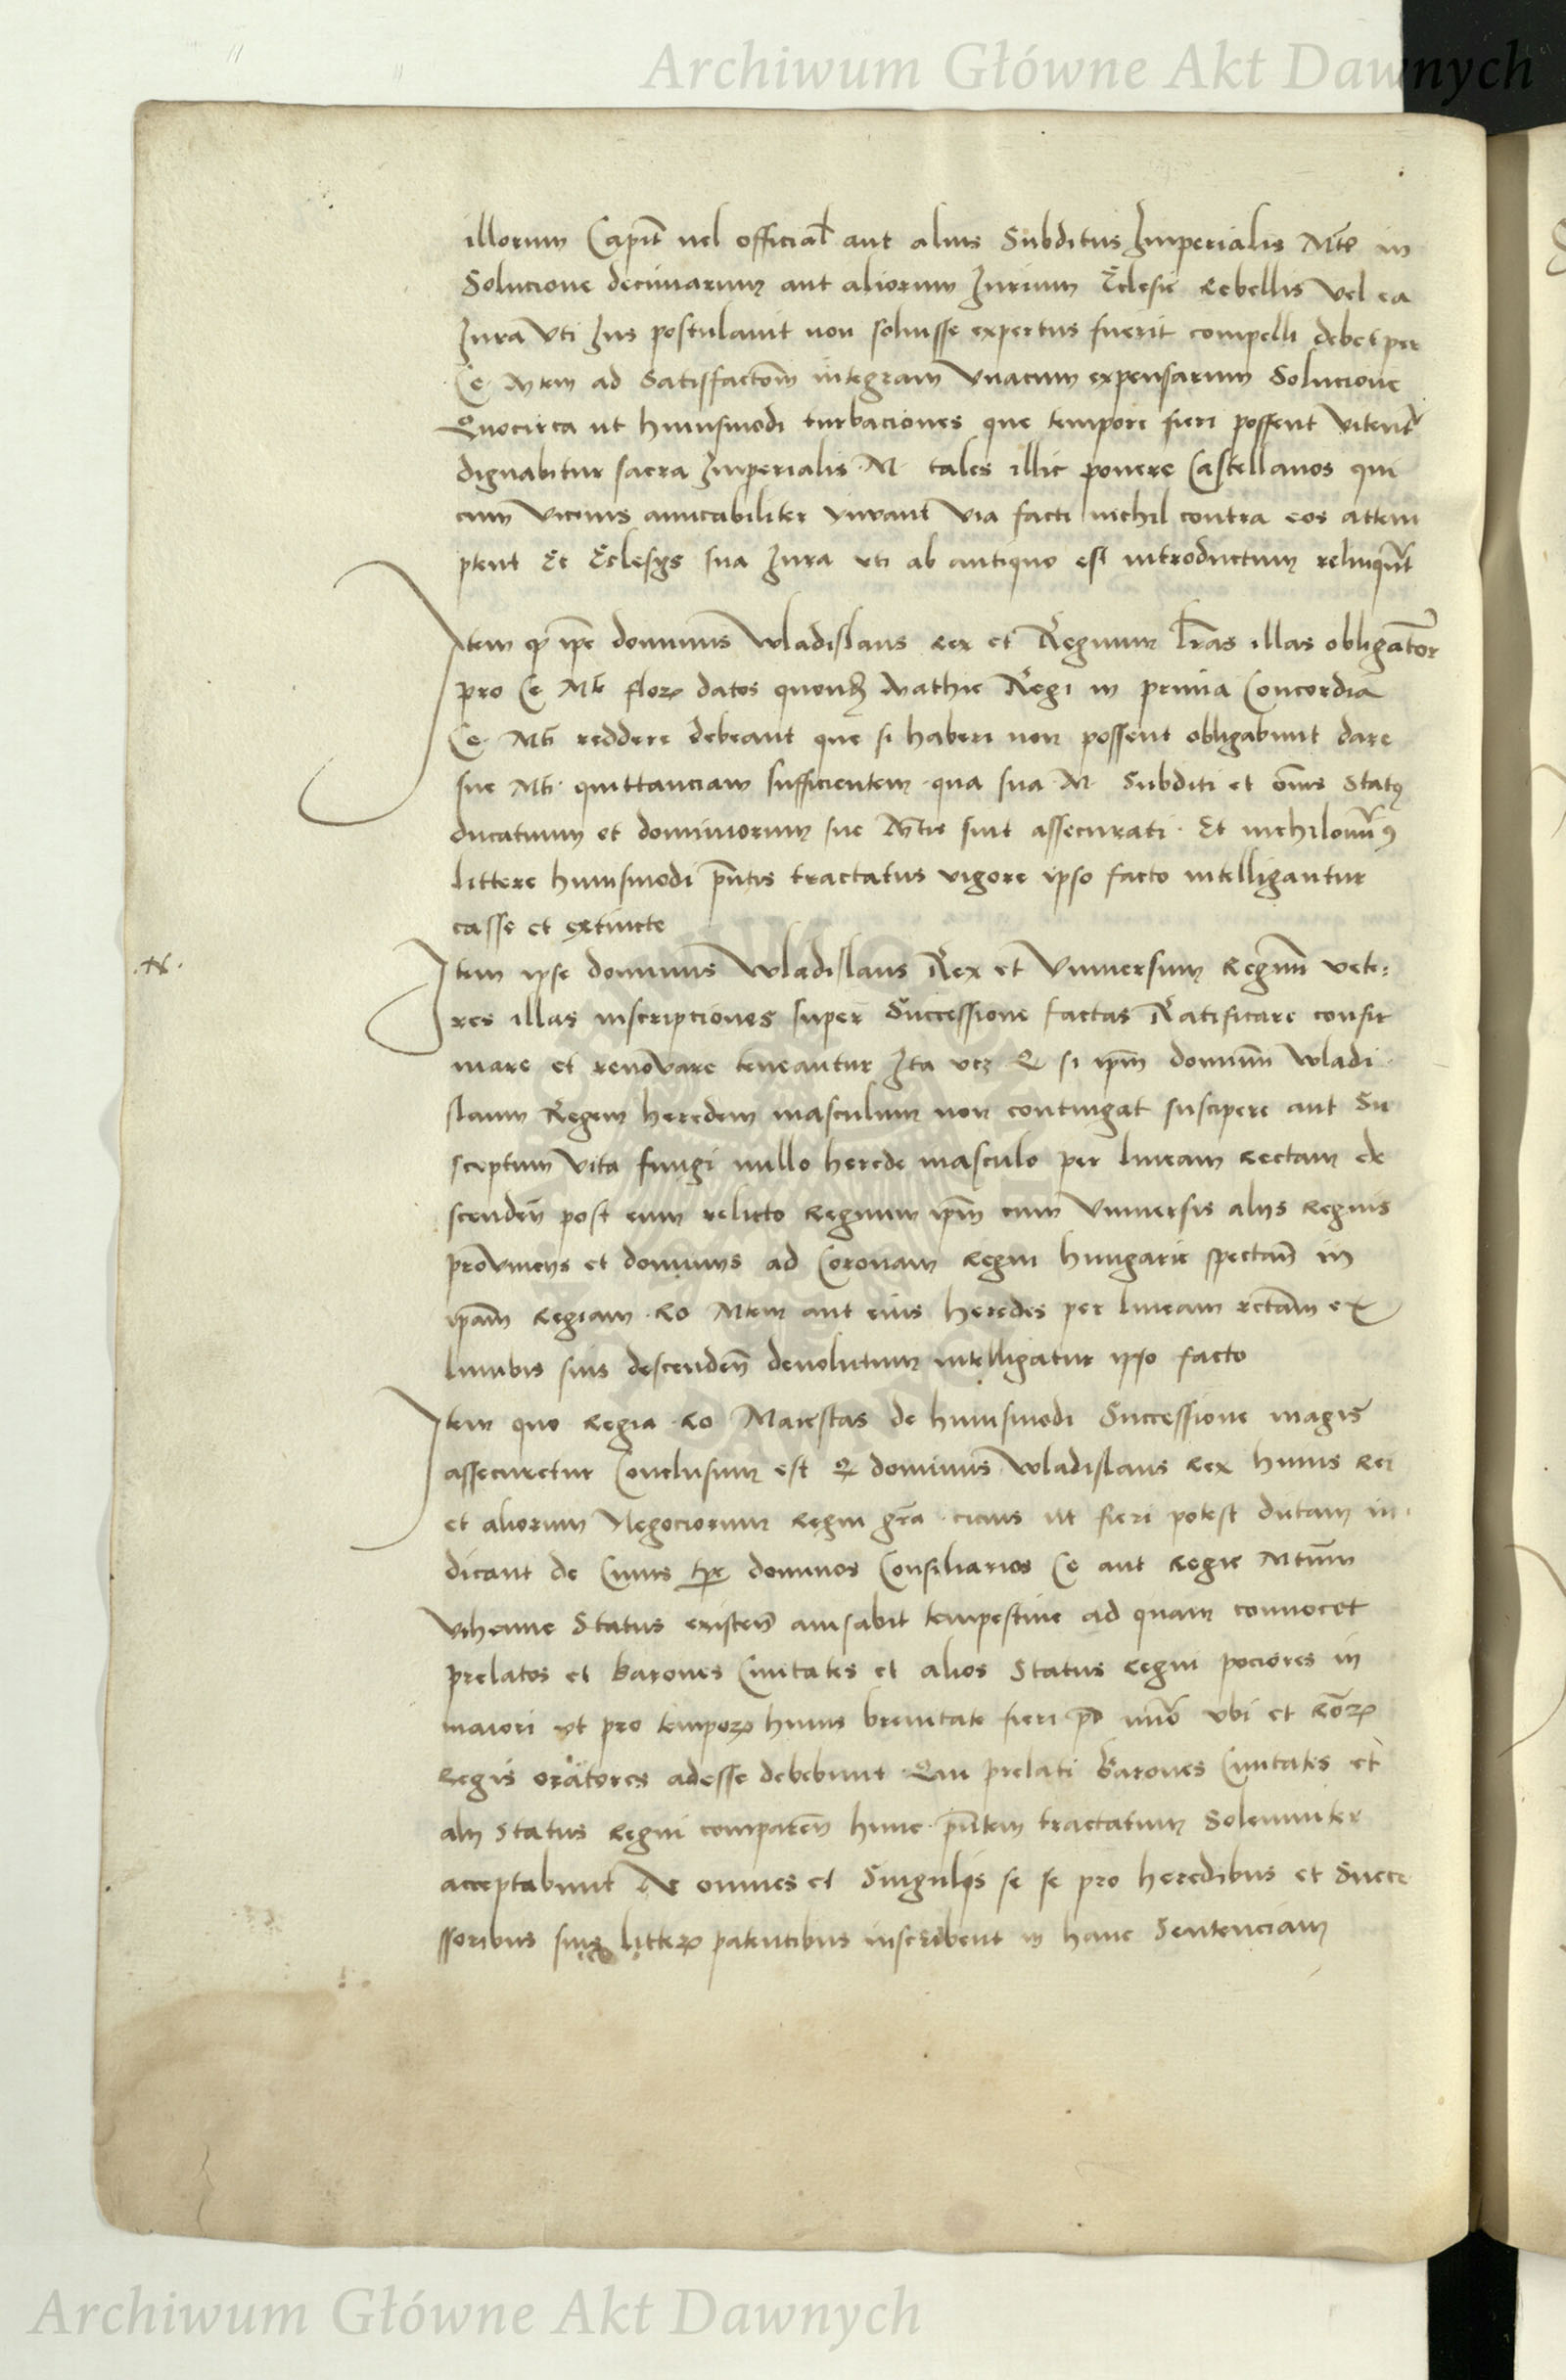 Archiwum Główne Akt Dawnych
illorum Capit̃ vel official̃ aut alius Subditus Imperialis Mt̃e in
Solucione decimarum aut aliorum Iurium Ecclesie Rebellis vel ea
Iura Vti Ius postulavit non solvisse expertus fuerit compelli debet per
Ce Mtem ad Satisfactõm integram Vnacum expensarum Solucione
Quocirca ut huiusmodi turbaciones que tempore fieri possent Vitent̃
dignabitur sacra Imperialis M. tales illic ponere Castellanos qui
cum Vicinis amicabiliter vivant Via facti nichil contra eos attem
ptent Et Eclesijs sua Iura vti ab antiquo est introductum relinqũt
Item qȝ ip̃e dominus Wladislaus Rex et Regnum Lr̃as illas obligator̃
pro Ce Mt̃ flor̃ datos quond̃ Mathie Regi in prima Concordia
Ce Mt̃i reddere debeant que si haberi non possent obligabunt dare
sue Mt̃i quittanciam sufficientem qua sua M. Subditi et om̃is Statꝰ
ducatuum et dominiorum sue Mt̃is sint assecurati. Et nichilomĩꝰ
Littere huiusmodi pñtis tractatus vigore ipso facto intelligantur
casse et extincte
.N.
Item ipse dominus Wladislaus Rex et Vniversum Regnũ vete:
res illas inscripciones super Successione factas Ratificare confir
mare et renovare teneantur Ita vcȝ Qȝ si ip̃m dominũ Wladi
slaum Regem heredem masculum non contingat suscipere aut Su
sceptum Vita fungi nullo herede masculo per lineam Rectam de
scendeñ post eum relicto Regnum ip̃m cum Vniversis alijs Regnis
provincijs et dominijs ad Coronam Regni hungarie spectañ in
ip̃am Regiam Ro Mtem aut eius heredes per lineam rectam ex
lumbis suis descendeñ devolutum intelligatur ipso facto
Item quo Regia Ro Maiestas de huiusmodi Successione magis
assecuretur Conclusum est Qȝ dominus Wladislaus Rex huius Rei
et aliorum Negociorum Regni grã cicius ut fieri potest dietam in
dicant de Cuius tp̃e dominos Consiliarios Ce aut Regie Mtum̃
Wienne Status existeñ avisabit tempestive ad quam convocet
prelatos et Barones Civitates et alios Status Regni pociores in
maiori ut pro tempor̃ huius brevitate fieri põt numõ vbi et Rõr̃
Regis oratores adesse debebunt Qui prelati Barones Civitates et
alij Status Regni compareñ hunc pñtem tractatum Solenniter
acceptabunt Ac omnes et Singulis se se pro heredibus et Succe
ssoribus suis litter̃ patentibus inscribent in hanc Sentenciam
Archiwum Główne Akt Dawnych